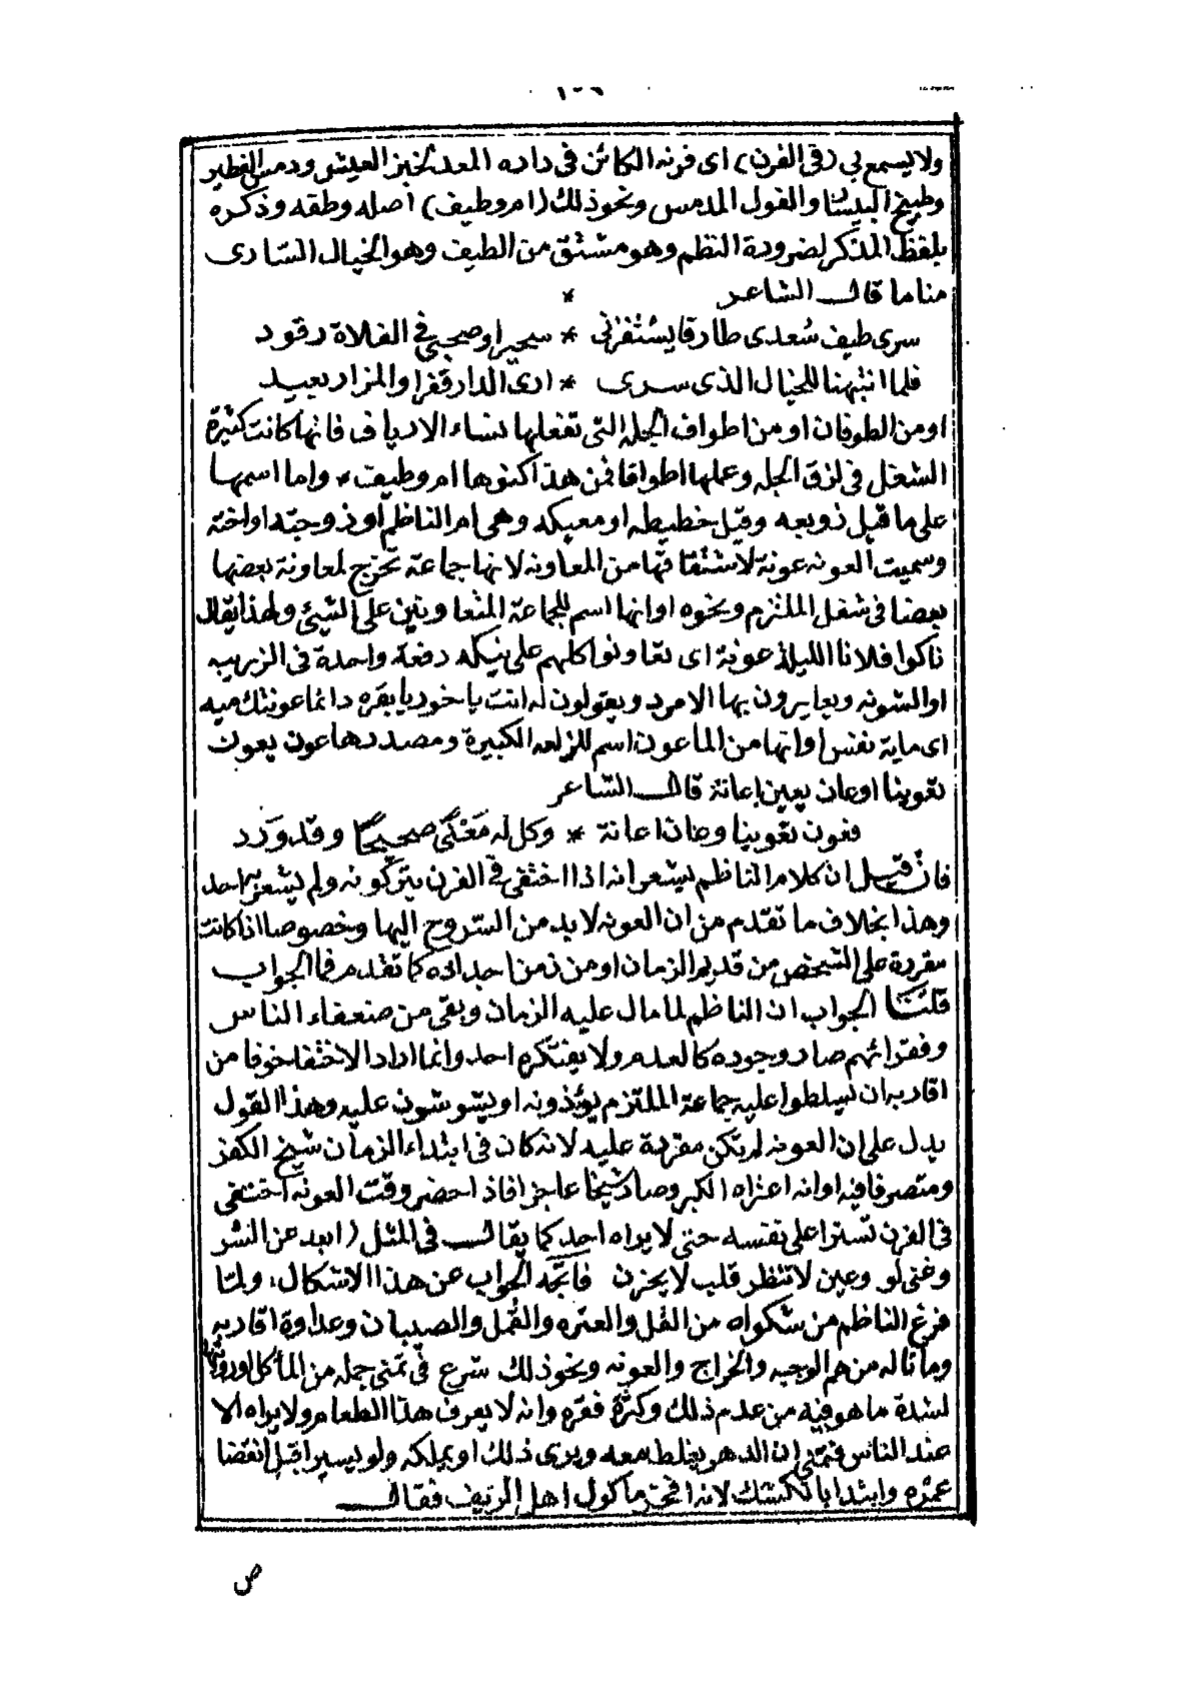 ١٠٩
ولا يسمع بي (في الفرن) اى فرنه الكائن فى داره المعد لخبز العيش ودمس الفطير
وطبيخ البيسار والفول المدمس ونحو ذلك (ام وطيف) أصله وطفه وذكره
بلفظ المذكر لضرورة النظم وهو مشتق من الطيف وهو الخيال السارى
مناما قال الشاعر *
سرى طيف سُعدى طارقا يستفزنى * سحيرا وصحبي في الفلاة رقود
فلما انتبهنا للخيال الذى سرى * ارى الدار قفرا والمزار بعيد
او من الطوفان او من اطواف الجله التى تفعلها نساء الارياف فانها كانت كثيرة
الشغل فى لزق الجله وعملها اطوافا فمن هذا كنوها ام وطيف * واما اسمها
على ما قيل زوبعه وقيل خطيطه او معيكه وهى ام الناظم أو زوجته او اخته
وسميت العونه عونة لاشتقاقها من المعاونه لانها جماعة تخرج لمعاونة بعضها
بعضا فى شغل الملتزم ونحوه او انها اسم للجماعة المتعاونين على الشيئ ولهذا يقال
ناكوا فلانا الليلة عونة اى تعاونوا كلهم على نيكه دفعة واحدة فى الزريبه
او الشونه ويعايرون بها الامرد ويقولون له انت يا خور يا بقره دائما عونتك ميه
اى ماية نفس او انها من الماعون اسم للزلعه الكبيرة ومصدرها عون يعون
تعوينا او عان يعين إعانة قال الشاعر
فعون تعوينا وعان اعانة * وكل له مَعْنًى صحيحًا وقد وَرَد
فان قيل ان كلام الناظم يشعر انه اذا اختفى فى الفرن يتركونه ولم يشعر به احد
وهذا بخلاف ما تقدم من ان العونه لا بد من السروح اليها وخصوصا اذا كانت
مقررة على الشخص من قديم الزمان او من زمن اجداده كما تقدم فما الجواب
قلنا الجواب ان الناظم لما مال عليه الزمان وبقى من ضعفاء الناس
وفقرائهم صار وجوده كالعدم ولا يفتكره احد وانما اراد الاختفا خوفا من
اقاربه ان يسلطوا عليه جماعة الملتزم يؤذونه او يشوشون عليه وهذا القول
يدل على ان العونه لم تكن مقررة عليه لانه كان فى ابتداء الزمان شيخ الكفر
ومتصرفا فيه او انه اعتراه الكبر وصار شيخا عاجزا فاذا حضر وقت العونه اختفى
فى الفرن تسترا على نفسه حتى لا يراه احد كما يقال فى المثل (ابعد عن الشر
وغنى لو وعين لا تنظر قلب لا يحزن فاتجه الجواب عن هذا الاشكال، ولما
فرغ الناظم من شكواه من القل والعتره والقمل والصيبان وعداوة اقاربه
وما ناله من هم الوجبه والخراج والعونه ونحو ذلك شرع فى تمنى جمله من المأكل
لشدة ما هو فيه من عدم ذلك وكثرة فقره وانه لا يعرف هذا الطعام ولا يراه الا
عند الناس فتمنى ان الدهر يغلط معه ويرى ذلك او يملكه ولو يسيرا قبل انقضا
عمره وابتدا بالكشك لانه افخر ماكول اهل الريف فقال
ص